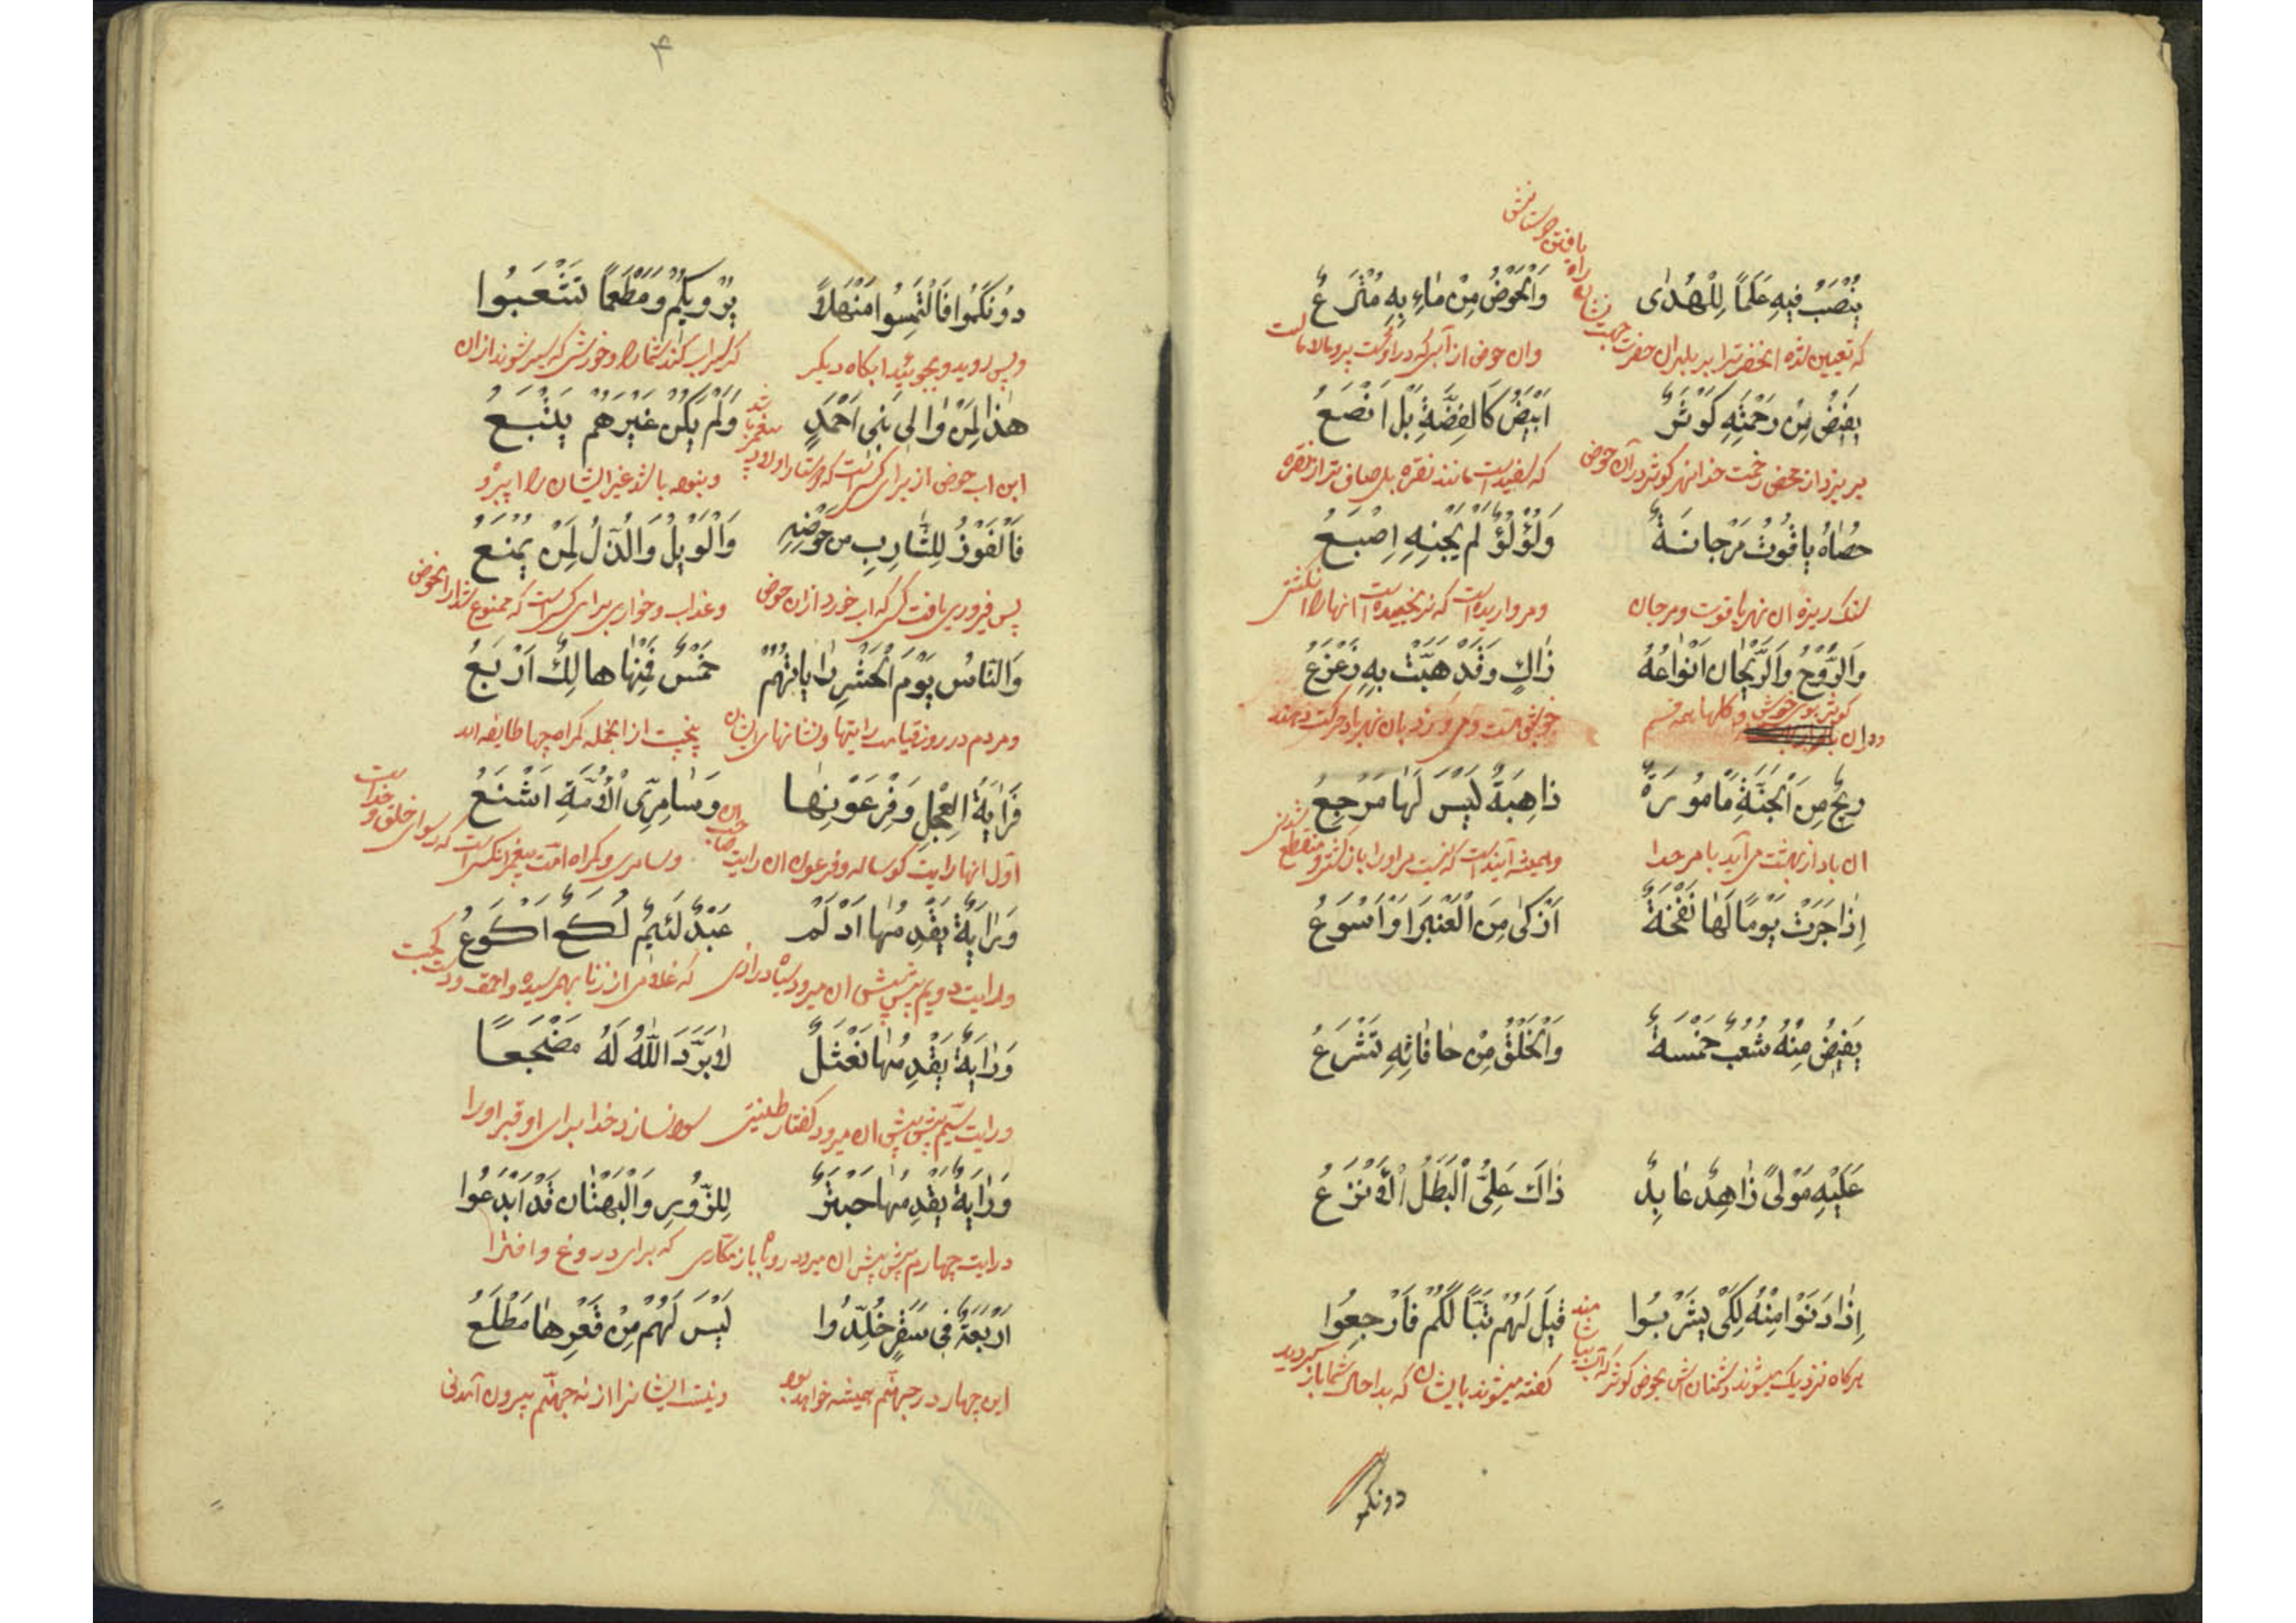 یُنْصَبُ فیهِ عَلَمًا لِلْهُدٰی وَالْحَوْضُ مِنْ مٰاءٍ بِهِ مُتْرَعُ
که تعیین شده آنحضرت را برابر آن حضرت جهت نشانه راه یافتن
وان حوض از آب که در اوست پر و مالامالست
یَفیضُ مِنْ رَحْمَتِهِ کَوْثَرٌ اَبْیَضُ کَالْفِضَّةِ بَلْ اَنْصَعُ
میریزد از محض رحمت خدا نهر کوثر در آن حوض که سفید است مانند نقره بل صاف تر از نقره
حَصٰاهُ یاقُوتٌ مَرْجانَةٌ وَلُؤْلُؤٌ لَمْ یَجْنِهِ اِصْبَعُ
سنک ریزه ان نهر یاقوت ومرجان ومروارید است که نچیده است انها را انکشتی
وَالرَّوْحُ وَالرَّیْحٰان اَنْوٰاعُهُ ذٰاكٍ وَقَدْ هَبَّتْ بِهِ زَعْزَعُ
ریحٌ مِنَ الْجَنَّةِ مَاْمُورَةٌ ذاهِبَةٌ لَیْسَ لَهٰا مَرْجِعُ
ان باد از بهشت می آید بامر خدا وهمیشه آینده است که نیست مر او را بازکشتی و منقطع شدنی
اِذٰا جَرَتْ یَوْمًا لَهٰا نَفْحَةٌ اَزْکٰی مِنَ الْعَنْبَرِ اَوْ اَسْوَعُ
یَفیضُ مِنْهُ شُعَبٌ خَمْسَةٌ وَالْخَلْقُ مِنْ حٰافٰاتِهِ تَشْرَعُ
عَلَیْهِ مَوْلیً زٰاهِدٌ عٰابِدٌ ذٰاكَ عَلِیُّ الْبَطَلُ الْاَنْزَعُ
اِذٰا دَنَوْا مِنْهُ لِکَیْ یَشْرَبُوا قیلَ لَهُمْ تَبًّا لَکُمْ فَارْجِعُوا
هرکاه نزدیک میشوند دشمنان اش بحوض کوثر که آب بیاشامند کفته میشوند بایشان که بدا حال شما باز کردید
دونکمو
۴
دُونَکُمُوا فَالْتَمِسُوا مَنْهَلاً یُرْویکُمُ وَمَطْعَمًا تَشْعَبُوا
وپس روید وبجوئید آبکاه دیکر که سیراب کند شما را وخورشی که سیر شوند از ان
هٰذٰا لِمَنْ وٰالیٰ بَنی اَحْمَدٍ وَلَمْ یَکُنْ غَیْرَهُمْ یَتْبَعُ
این اب حوض از برای کسی است که دوستدار اولاد پیغمبر باشد ونبوده باشد غیر ایشان را پیرو
فَالْفَوْزُ لِلشّٰارِبِ مِن حَوْضِهِ وَالْوَیْلُ وَالذُّلُ لِمَنْ یُمْنَعُ
پس فیروزی یافت کسی که اب خورد از ان حوض وعذاب وخواری برای کسی است که ممنوع شد از انحوض
وَالنّٰاسُ یَوْمَ الْحَشْرِ رٰایٰاتُهُمْ خَمْسٌ فَمِنْهٰا هالِكٌ اَرْبَعُ
ومردم در روز قیامت رایتها ونشانهای ایشان پنجست از انجمله کمراه چهار طایفه اند
فَرٰایَةُ الْعِجْلِ وَفِرْعَوْنِهٰا وَسٰامِرِیِّ الْاُمَّةِ اَشْنَعُ
اوّل انها رایت کوساله وفرعون ان رایت صاحب ان وسامری وکمراه امّت پیغمبر انکس است که رسوای خلق و خداست
وَرٰایَةٌ یَقْدِمُهٰا اَدْلَم عَبْدٌ لَئیمٌ لُکَعٌ اَکْوَعُ
ورایت دویم پیش پیش ان میرود سیاه درازی که غلامی از زنا بهمرسیده واحمق ودست کجست
وَرٰایَةٌ یَقْدِمُهٰا نَعْثَلٌ لاٰبَرَّدَ اللّٰهُ لَهُ مَضْجَعًا
ورایت سیّم پیش پیش ان میرود کفتار طینتی سرد نسازد خدا برای او قبر او را
وَرٰایَةٌ یَقْدِمُهٰا حَبْتَرٌ لِلزُّورِ وَالْبُهْتٰانِ قَدْ اَبْدَعُوا
ورایت چهارم پیش پیش ان میرود روباه باز مکّاری که برای دروغ وافترا
اَرْبَعَةٌ فی سَقَرٍ خُلِّدُوا لَیْسَ لَهُمْ مِنْ قَعْرِهٰا مَطْلَعُ
این چهار در جهنّم همیشه خواهد بود ونیست ایشانرا از ته جهنّم بیرون آمدنی